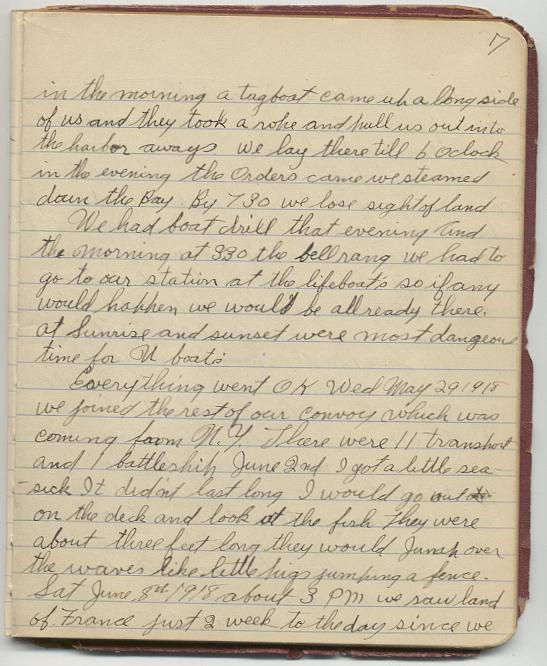 7
in the morning a tugboat came up a long side
of us and they took a rope and pull us out into
the harbor aways We lay there till 6 Oclock
in the evening the Orders came we steamed
down the Bay By 730 we lose sight of land
We had boat drill that evening And
the morning at 330 the bell rang we had to
go to our station at the lifeboats so if any
would happen we would be all ready there.
at Sunrise and sunset were most dangeous
time for U boats
Everything went OK Wed May 29 1918
we joined the rest of our convoy which was
coming from N.Y. There were 11 transport
and 1 battleship June 2nd I got a little sea-
-sick It didn't last long I would go out
on the deck and look at the fish They were
about three feet long they would Jump over
the waves like little pigs jumping a fence.
Sat June 8st 1918 about 3 PM we saw land
of France just 2 week to the day since we